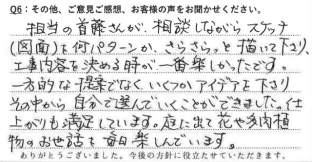 Q6：その他、ご意見ご感想、お客様の声をお聞かせください。
担当の首藤さんが、相談しながらスケッチ
(図面)を何パターンか、さらさらっと描いて下さり、
工事内容を決める時が一番楽しかったです。
一方的な提案でなく、いくつかアイデアを下さり
その中から自分で選んでいくことができました。仕
上がりも満足しています。庭に出て花や多肉植
物のお世話を毎日楽しんでいます。
ありがとうございました。今後の方針に役立たせていただきます。